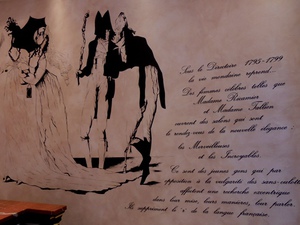 Sous le Directoire 1795-1799
la vie mondaine reprend
Des femmes célèbres telles que
Madame Récamier
et Madame Tallien
ouvrent des salons qui sont
le rendez-vous de la nouvelle élégance :
les Merveilleuses
et les Incroyables.
Ce sont des jeunes gens qui par
opposition à la vulgarité des sans-culottes
affectent une recherche excentrique
dans leur mise, leurs manières, leur parler.
Ils suppriment le "r" de la langue française.